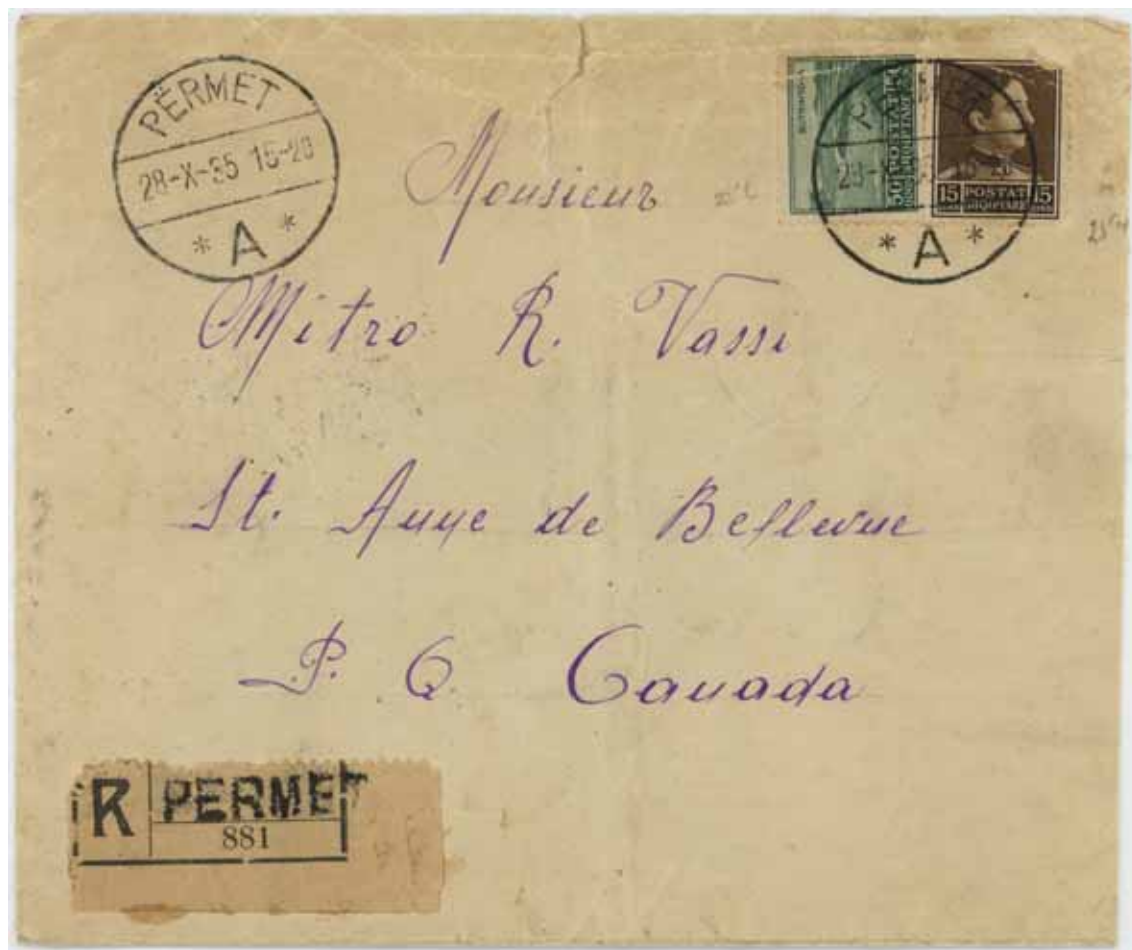 PËRMET
28-X-35 15-20
* A *
50 POSTAT
SHQIPTARE
15 POSTAT 15
SHQIPTARE
* A *
Monsieur
Mitro R. Vassi
St. Anne de Bellevue
P. Q. Canada
R PERMET
881